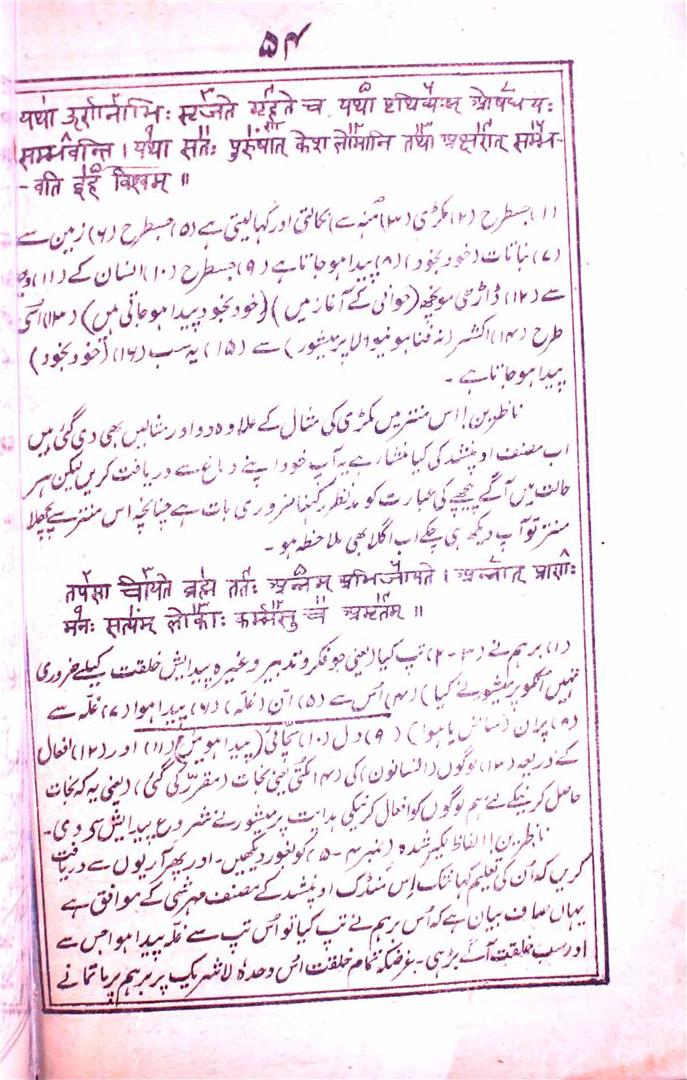 ۵۴
यथा ऊर्णनाभिः सृजते गृह्णते च यथा पृथिव्याम् ओषधयः
सम्भवन्ति । यथा सतः पुरुषात् केश लोमानि तथा अक्षरात् सम्भ-
-वति इह विश्वम् ॥
(۱) جسطرح (۲) مکڑی (۳) مُنہ سے نکالتی اور کہا لیتی ہے (۵) جسطرح (۶) زمین سے
(۷) نباتات (خودبخود) (۸) پیدا ہو جاتا ہے (۹) جسطرح (۱۰) انسان کے (۱۱)
سے (۱۲) ڈاڑھی مونچھ (جوانی کے آغاز میں) (خودبخود پیدا ہو جاتی ہیں) (۱۳) اسی
طرح (۱۴) اکشر (نہ فنا ہونیوالا پرمیشور) سے (۱۵) یہ سب (۱۶) (خودبخود)
پیدا ہو جاتا ہے ۔
ناظرین! اس منتر میں مکڑی کی مثال کے علاوہ دو اور مثالیں بھی دی گئی ہیں
اب مصنف اوپنشد کی کیا منشار ہے یہ آپ خود اپنے دماغ سے دریافت کریں لیکن ہر
حالت میں آگے پیچھے کی عبارت کو مدنظر رکھنا ضروری بات ہے چنانچہ اس منتر سے پچھلا
منتر تو آپ دیکھ ہی چکے اب اگلا بھی ملاحظہ ہو ۔
तपसा चीयते ब्रह्म ततः अन्नम् अभिजायते । अन्नात् प्राणः
मनः सत्यम् लोकाः कर्म्मसु च अमृतम् ॥
(۱) برہم نے (۲-۳) تپ کیا (یعنی جو فکر و تدبیر وغیرہ پیدایش خلقت کیلئے ضروری
تہیں انکو پرمیشور نے کیا) (۴) اُس سے (۵) اَنّ (غلہ) (۶) پیدا ہوا (۷) غلہ سے
(۸) پران (سانس یا ہوا) (۹) دل (۱۰) سچائی (پیدا ہوئیں) (۱۱) اور (۱۲) افعال
کے ذریعہ (۱۳) لوگوں (انسانوں) کی (۱۴) مکتی یعنی نجات (مقرر کی گئی) (یعنی یہ کہ نجات
حاصل کرنیکے لئے ہم لوگوں کو افعال کرنیکی ہدایت پرمیشور نے شروع پیدایش سے کر دی۔
ناظرین! الفاظ لکیر شدہ (نمبر ۴-۵) کو بغور دیکھیں ۔ اور پھر آریوں سے دریافت
کریں کہ اُن کی تعلیم کہانتک اِس مُنڈک اوپنشد کے مصنف مہرشی کے موافق ہے
یہاں صاف بیان ہے کہ اُس برہم نے تپ کیا تو اُس تپ سے غلہ پیدا ہوا جس سے
اور سب خلقت آگے بڑہی ۔ غرضکہ تمام خلقت اس وحدہٗ لاشریک پر برہم پرماتما نے